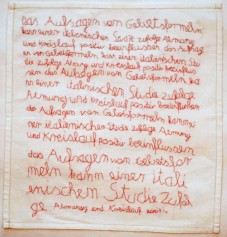 Das Aufsagen von Gebetsformeln
kann einer italienischen Studie zufolge Atmung
und Kreislauf positiv beeinflussen das Aufsagen
von Gebetsformeln kann einer italienischen Stu
die zufolge Atmung und Kreislauf positiv beeinflus
sen das Aufsagen von Gebetsformeln kann
einer italienischen Studie zufolge
Atmung und Kreislauf positiv beeinflussen
das Aufsagen von Gebetsformeln kann ei
ner italienischen Studie zufolge Atmung
und Kreislauf positiv beeinflussen
das Aufsagen von Gebetsfor
meln kann einer itali
enischen Studie zufol
ge Atmung und Kreislauf